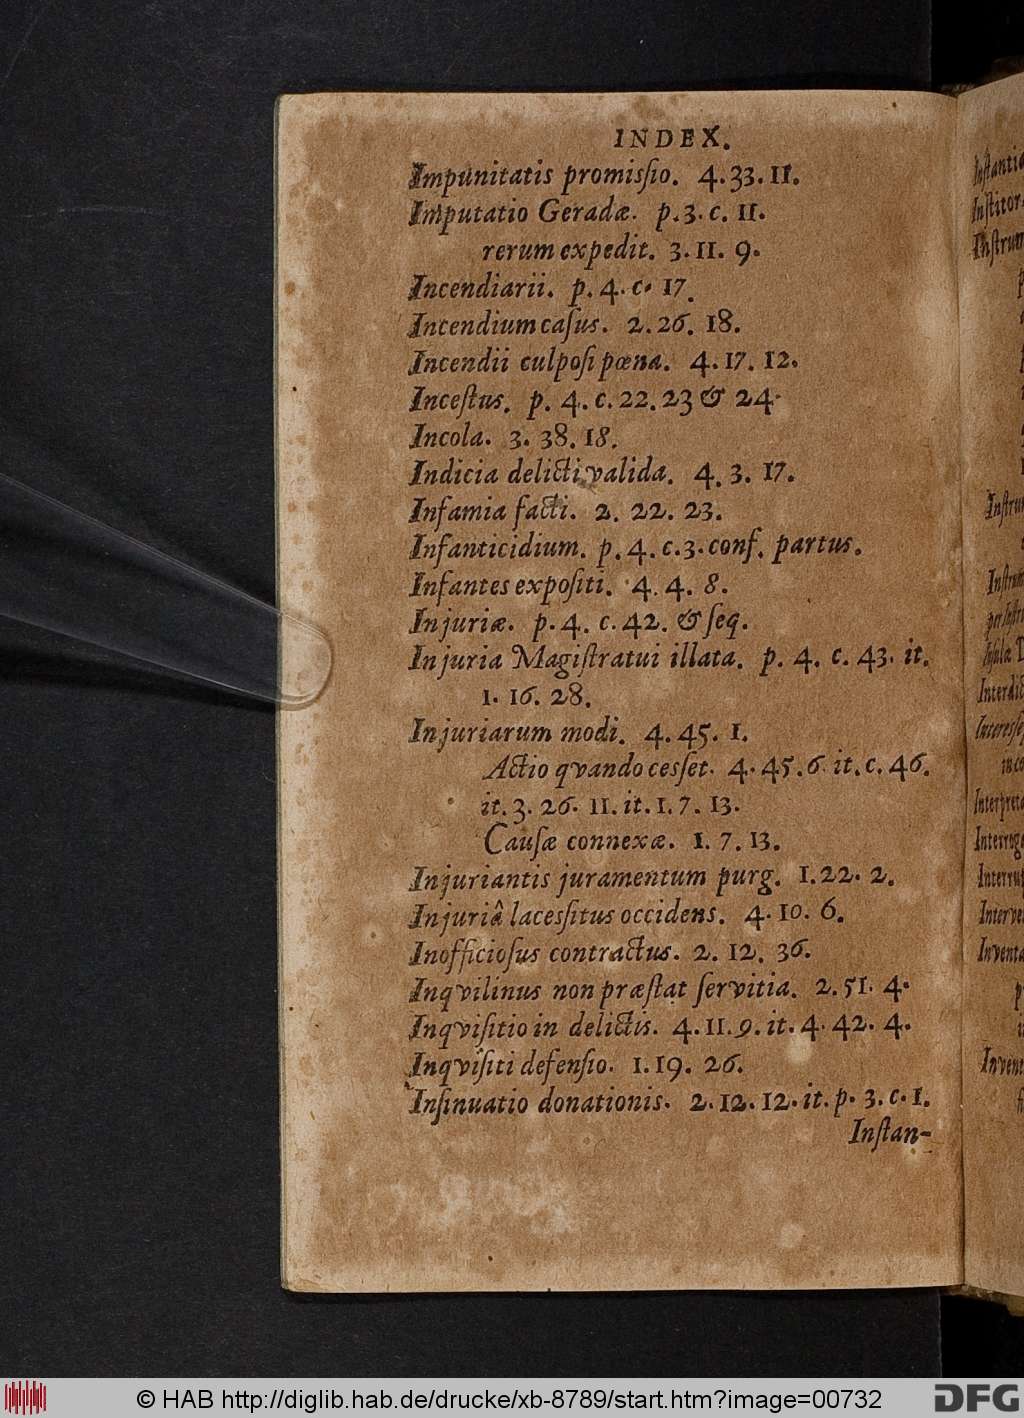 INDEX.
Impunitatis promiſsio. 4.33.11.
Imputatio Geradæ. p.3.c.11.
rerum expedit. 3.11.9.
Incendiarii. p.4.c.17.
Incendium caſus. 2.26.18.
Incendii culpoſi pœna. 4.17.12.
Inceſtus. p.4.c.22.23 & 24.
Incola. 3.38.18.
Indicia delicti valida. 4.3.17.
Infamia facti. 2.22.23.
Infanticidium. p.4.c.3.conf. partus.
Infantes expoſiti. 4.4.8.
Injuriæ. p.4.c.42. & ſeq.
Injuria Magiſtratui illata. p.4.c.43. it.
1.16.28.
Injuriarum modi. 4.45.1.
Actio qvando ceſſet. 4.45.6. it.c.46.
it.3.26.11.it.1.7.13.
Cauſæ connexæ. 1.7.13.
Injuriantis juramentum purg. 1.22.2.
Injuriâ laceſsitus occidens. 4.10.6.
Inofficioſus contractus. 2.12.36.
Inqvilinus non præſtat ſervitia. 2.51.4.
Inqviſitio in delictis. 4.11.9.it.4.42.4.
Inqviſiti defenſio. 1.19.26.
Inſinuatio donationis. 2.12.12.it.p.3.c.1.
Inſtan-
© HAB http://diglib.hab.de/drucke/xb-8789/start.htm?image=00732
DFG